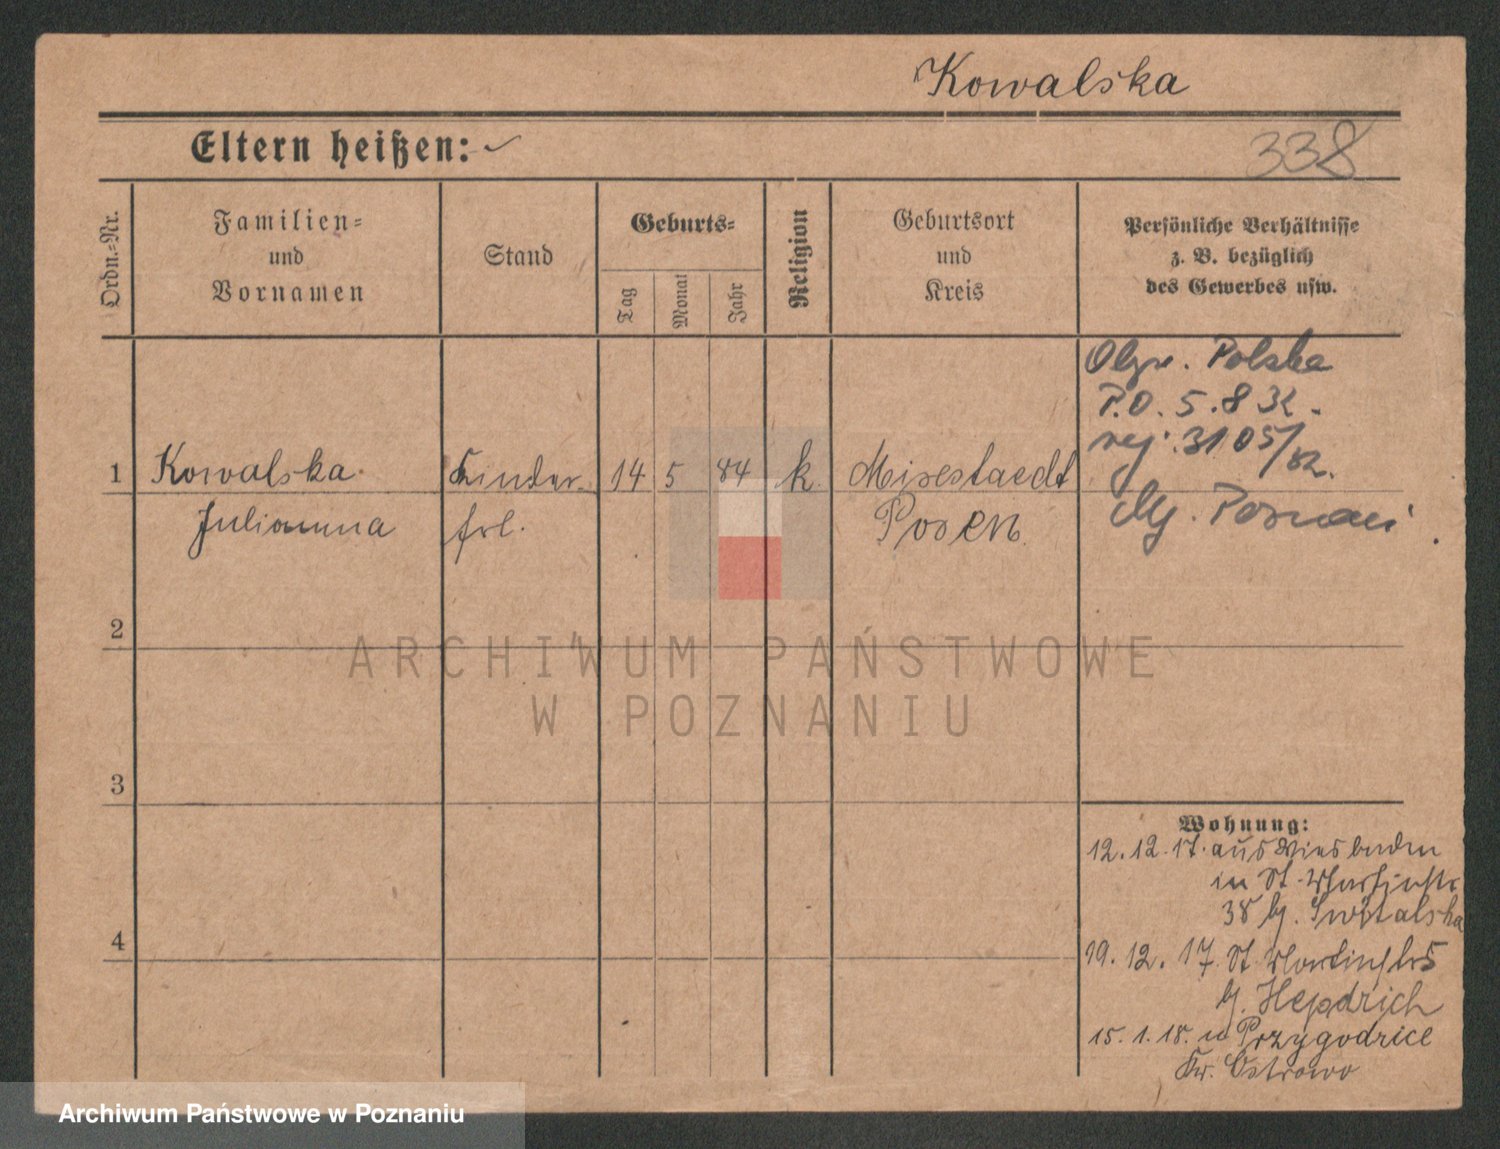 Kowalska
Eltern heißen:
338
Ordn.-Nr.
Familien-
und
Vornamen
Stand
Geburts-
Tag
Monat
Jahr
Religion
Geburtsort
und
Kreis
Persönliche Verhältnisse
z. B. bezüglich
des Gewerbes usw.
Polska
P.O. 5.8 32.
rej. 3105/32.
1 Kowalska Kinder- 14 5 84 k. Misestaedt
Julianna frl. Posen
Mg. Poznań.
2
3
4
Wohnung:
12.12.17. aus Wiesbaden
in St. Martinstr
38 bj. Switalska
19.12.17 St. Martinstr 5
bj. Heydrich
15.1.18. n Przygodzice
Kr. Ostrowo
ARCHIWUM PAŃSTWOWE
W POZNANIU
Archiwum Państwowe w Poznaniu